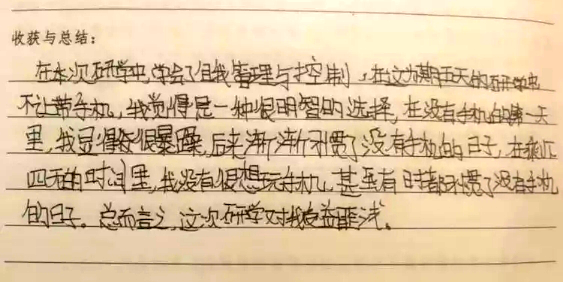 收获与总结：
在本次研学中,学会了自我管理与控制,在这为期五天的研学中
不让带手机,我觉得是一种很明智的选择,在没有手机的第一天
里,我显得很暴躁,后来渐渐习惯了没有手机的日子,在剩下
四天的时间里,我没有很想玩手机,甚至有时都习惯了没有手机
的日子。总而言之,这次研学对我受益匪浅。